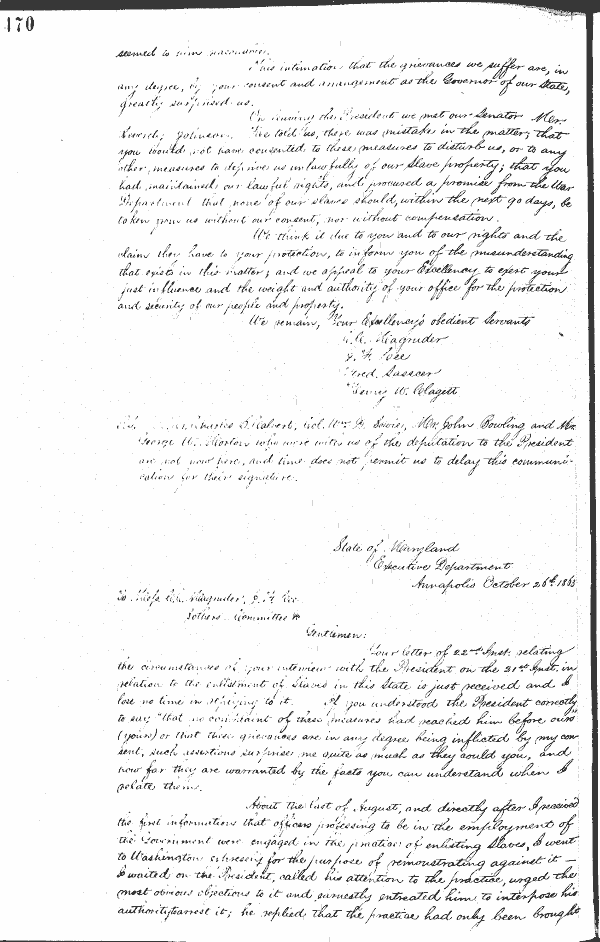 170
seemed to him necessary.
This intimation that the grievances we suffer are, in
any degree, by your consent and arrangement as the Governor of our State,
greatly surprised us.
On leaving the President we met our Senator Mr.
Reverdy Johnson. He told us, there was mistake in the matter; that
you would not have consented to these measures to disturb us, or to any
other measures to deprive us unlawfully of our slave property; that you
had maintained our lawful rights, and procured a promise from the War
Department that none of our slaves should, within the next 90 days, be
taken from us without our consent, nor without compensation.
We think it due to you and to our rights and the
claim they have to your protection, to inform you of the misunderstanding
that exists in this matter; and we appeal to your Excellency, to exert your
just influence and the weight and authority of your office for the protection
and security of our people and property.
We remain, Your Excellency's obedient Servants
Magruder
Lee
Fred. Sasscer
Henry W. Clagett
Charles B. Calvert, Col. Wm. Bowie, Mr. John Bowling and Mr.
George W. Morton who were with us of the deputation to the President
are not now here, and time does not permit us to delay this communi-
cation for their signature.
State of Maryland
Executive Department
Annapolis October 26th 1863
To Messrs. Magruder, Lee
&others Committee &c
Gentlemen:
Your letter of 22nd Inst. relating
the circumstances of your interview with the President on the 21st Inst. in
relation to the enlistment of Slaves in this State is just received and I
lose no time in replying to it. If you understood the President correctly
to say, "that no complaint of these measures had reached him before ours"
(yours) or that these grievances are in any degree being inflicted by my con-
sent, such assertions surprise me quite as much as they could you, and
how far they are warranted by the facts you can understand when I
relate them.
About the last of August, and directly after I received
the first information that officers professing to be in the employment of
the Government were engaged in the practice of enlisting slaves, I went
to Washington expressly for the purpose of remonstrating against it —
I waited on the President, called his attention to the practice, urged the
most obvious objections to it and earnestly entreated him to interpose his
authority to arrest it; he replied that the practice had only been brought